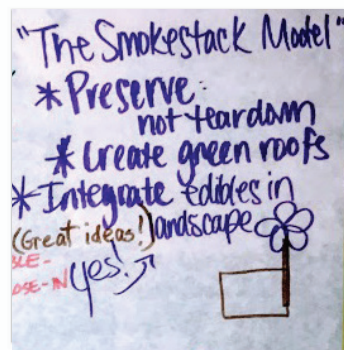 "The Smokestack Model"
* Preserve:
not teardown
* Create green roofs
* Integrate edibles in
(Great ideas!) landscape
Yes!